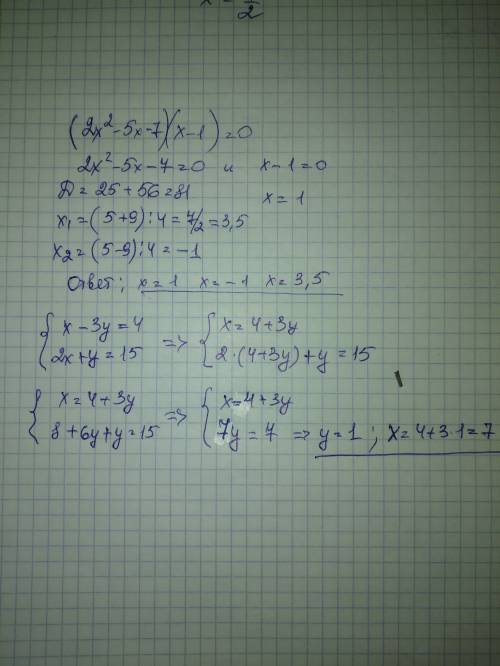 x = —/2
(2x²-5x-7)(x-1)=0
2x²-5x-7=0 и x-1=0
D=25+56=81 x=1
x₁=(5+9):4=7/2=3,5
x₂=(5-9):4=-1
Ответ: x=1 x=-1 x=3,5
{x-3y=4 => {x=4+3y
{2x+y=15 {2·(4+3y)+y=15
{x=4+3y => {x=4+3y
{8+6y+y=15 {7y=7 => y=1; x=4+3·1=7